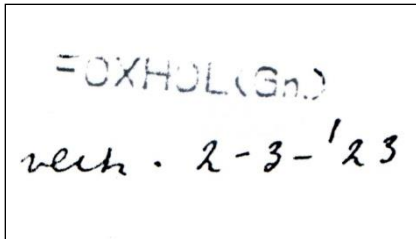 FOXHOL (Gn.)
vech. 2-3-'23